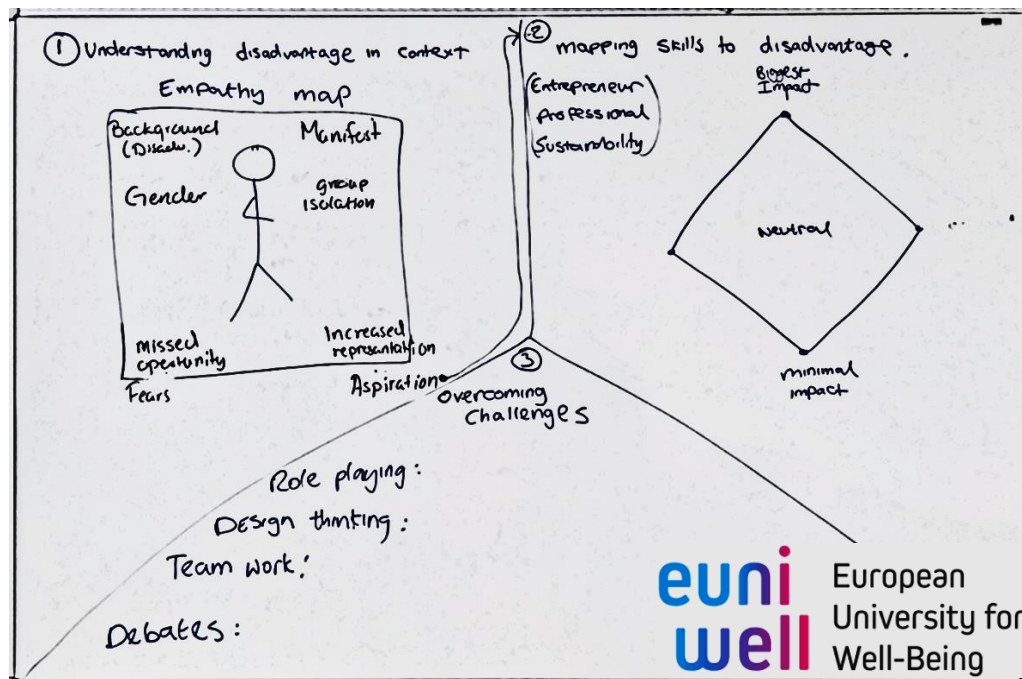 ① Understanding disadvantage in context
Empathy map
Background
(Disadv.)
Manifest
Gender
group
isolation
Missed
opportunity
Increased
representation
Fears
Aspiration
② mapping skills to disadvantage.
(Entrepreneur
Professional
Sustainability)
Biggest
Impact
Neutral
minimal
impact
③
Overcoming
Challenges
Role playing:
Design thinking:
Team work:
Debates:
euni
well
European
University for
Well-Being